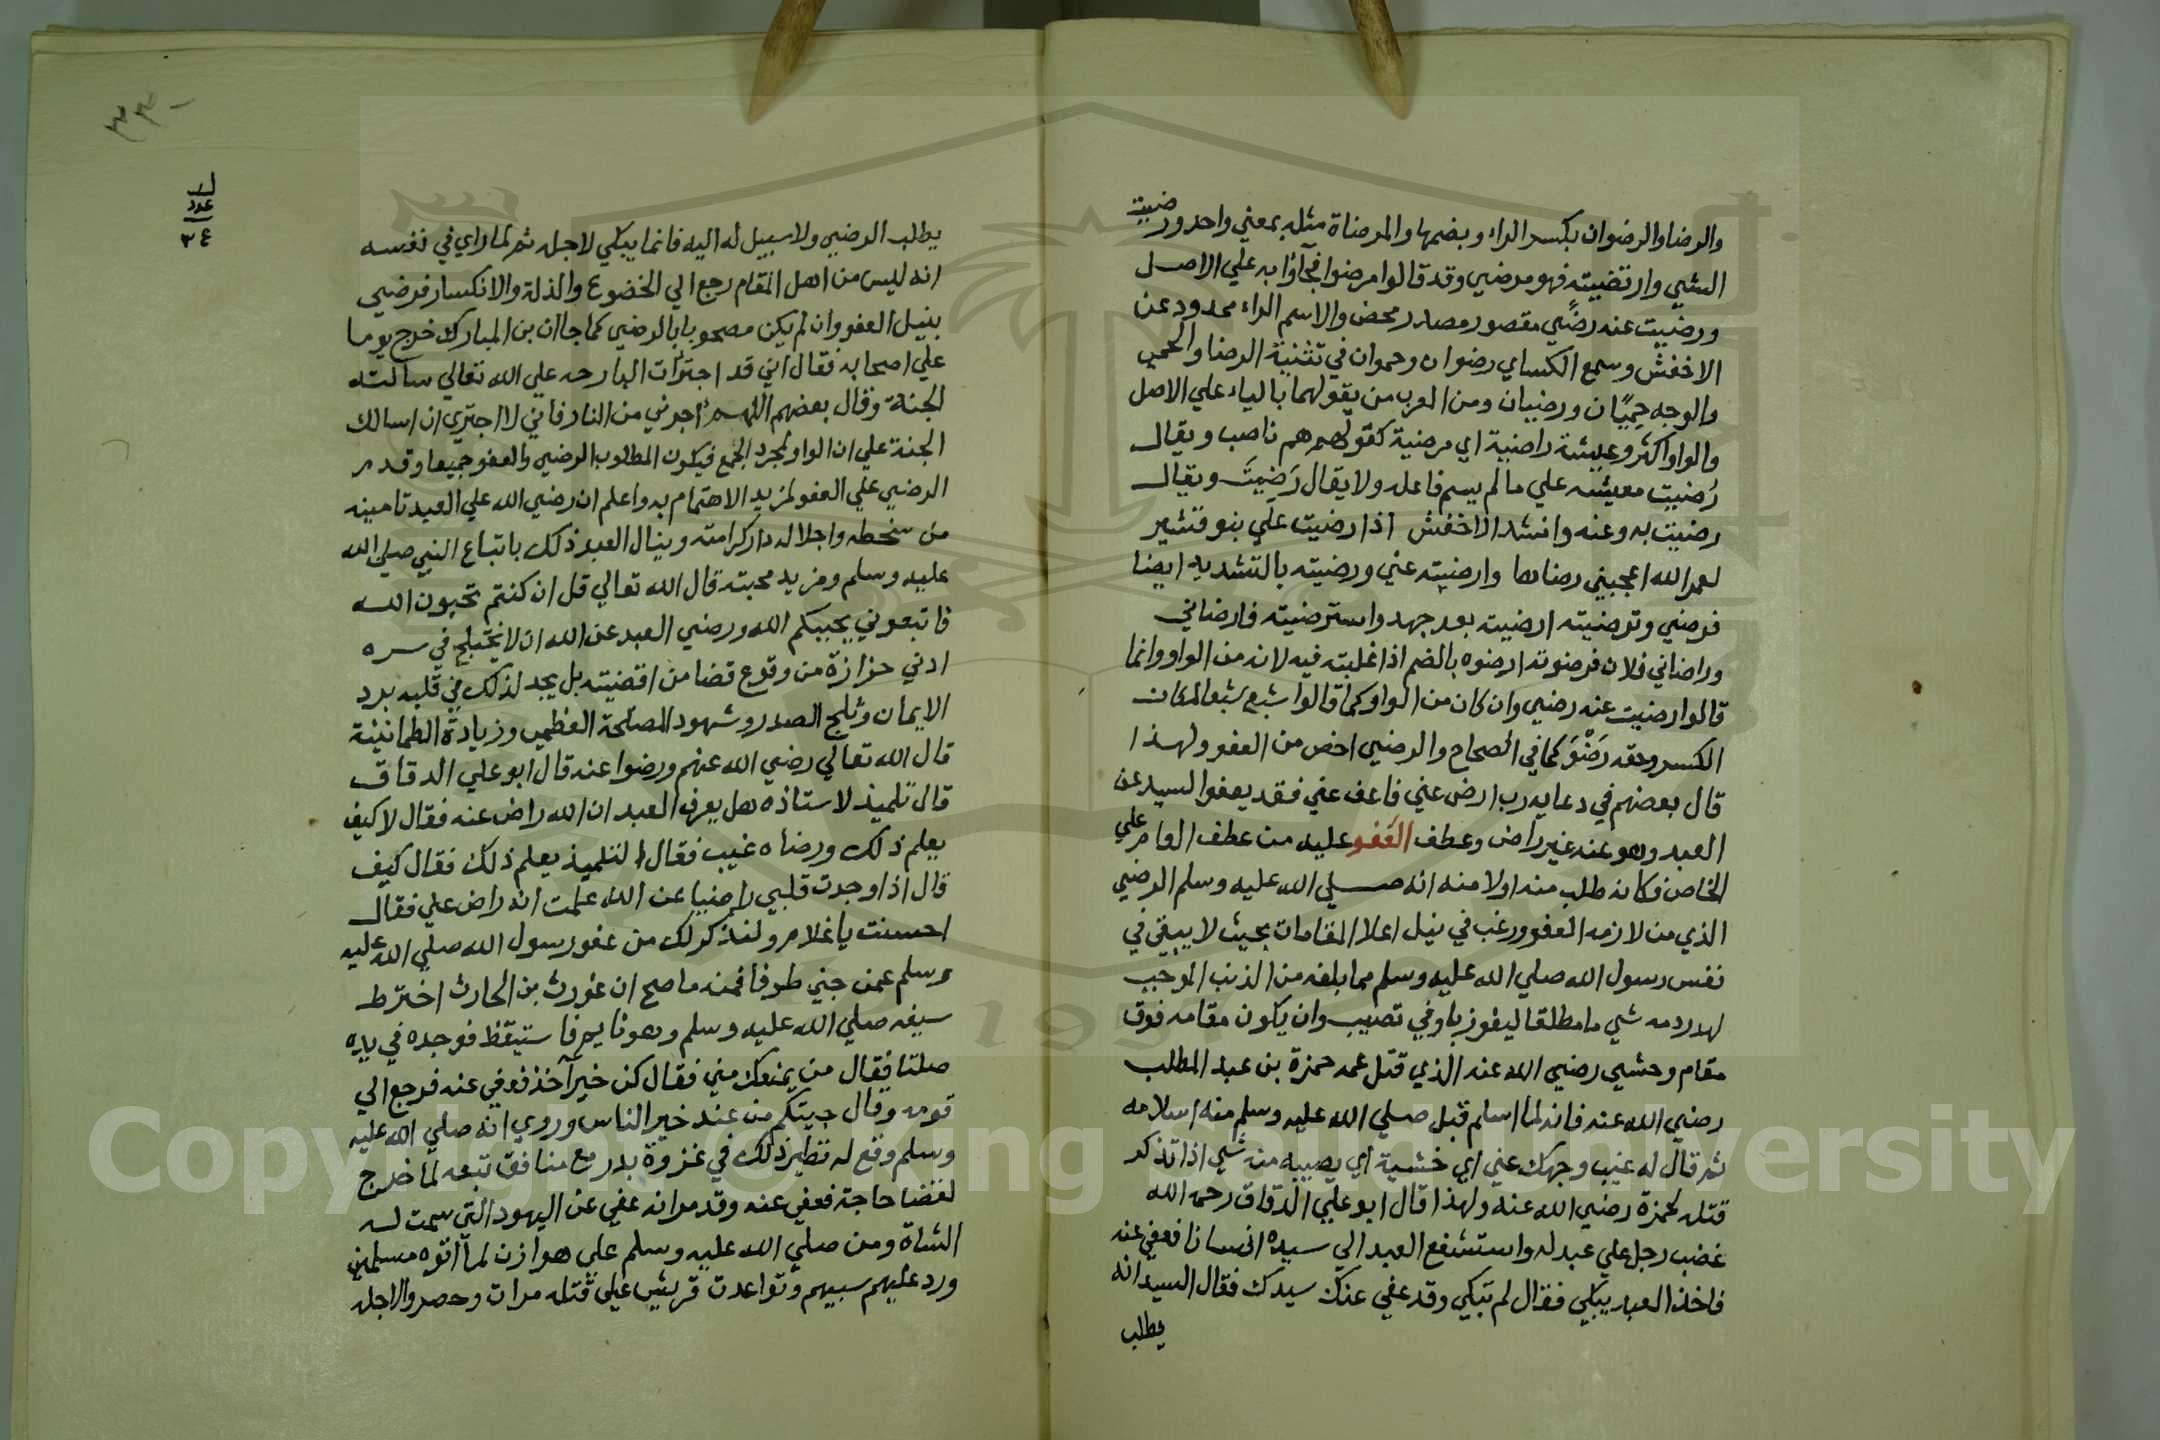 والرضا والرضوان بكسر الراء وبضمها والمرضاة مثله بمعني واحد ورضيت
الشي وارتضيته فهو مرضي وقد قالوا مرضوا فجآؤا به علي الاصل
ورضيت عنه رضًي مقصور مصدر محض والاسم الراء ممدود عن
الاخفش وسمع الكساي رضوان وحموان في تثنية الرضا والحمي
والوجه حِمِيًان ورضيان ومن العرب من يقولهما بالياء علي الاصل
والواو اكثر وعيشة راضية اي مرضية كقولهم هم ناصب ويقال
رُضيت معيشته علي ما لم يسم فاعله ولا يقال رَضِيتَ ويقال
رضيت به وعنه وانشد الاخفش اذا رضيت علي بنو قشير
لعمر الله اعجبني رضاها وارضيته عني ورضيته بالتشديد ايضا
فرضي وترضيته ارضيته بعد جهد واسترضيته فارضاني
وراضاني فلان فرضوته ارضوه بالضم اذا غلبته فيه لانه من الواو وانما
قالوا رضيت عنه رضي وان كان من الواو كما قالوا شبع شبعا لمكان
الكسر وحقه رَضْوَ كما في الصحاح والرضي اخص من العفو ولهذا
قال بعضهم في دعايه رب ارض عني فاعف عني فقد يعفوا السيد عن
العبد وهو عنه غير راض وعطف العَفو عليه من عطف العام علي
الخاص فكانه طلب منه اولا منه انه صلي الله عليه وسلم الرضي
الذي من لازمه العفو ورغب في نيل اعلا المقامات بحيث لا يبقي في
نفس رسول الله صلي الله عليه وسلم مما بلغه من الذنب الموجب
لهدر دمه شي ما مطلقا ليفوز باوفي نصيب وان يكون مقامه فوق
مقام وحشي رضي الله عنه الذي قتل عمه حمزة بن عبد المطلب
رضي الله عنه فانه لما اسلم قبل صلي الله عليه وسلم منه اسلامه
ثم قال له غيب وجهك عني اي خشية اي يصيبه منه شي اذا تذكر
قتله لحمزة رضي الله عنه ولهذا قال ابو علي الدقاق رحمه الله
غضب رجل علي عبد له واستشفع العبد الي سيده انسانا فعفي عنه
فاخذ العبد يبكي فقال لم تبكي وقد عفي عنك سيدك فقال السيد انه
يطلب
لر
عدد
٣٤
يطلب الرضي ولا سبيل له اليه فانما يبكي لاجله ثم لما راي في نفسه
انه ليس من اهل المقام رجع الي الخضوع والذلة والانكسار فرضي
بنيل العفو وان لم يكن مصحوبا بالرضي كما جا ان بن المبارك خرج يوما
علي اصحابه فقال اني قد اجترات البارحه علي الله تعالي سالته
الجنة وقال بعضهم اللهم اجرني من النار فاني لا اجتري ان اسالك
الجنة علي ان الواو لمجرد الجمع فيكون المطلوب الرضي والعفو جميعا وقدم
الرضي علي العفو لمزيد الاهتمام به واعلم ان رضي الله علي العبد تامينه
من سخطه واجلاله دار كرامته وينال العبد ذلك باتباع النبي صلي الله
عليه وسلم ومزيد محبته قال الله تعالي قل ان كنتم تحبون الله
فاتبعوني يحببكم الله ورضي العبد عن الله ان لا يختلج في سره
ادني حزازة من وقوع قضا من اقضيته بل يجد لذلك في قلبه برد
الايمان وثلج الصدر وشهود المصلحة العظمي وزيادة الطمانينة
قال الله تعالي رضي الله عنهم ورضوا عنه قال ابو علي الدقاق
قال تلميذ لاستاذه هل يعرف العبد ان الله راض عنه فقال لا كيف
يعلم ذلك ورضاه غيب فقال التلميذ يعلم ذلك فقال كيف
قال اذا وجدت قلبي راضيا عن الله علمت انه راض علي فقال
احسنت يا غلام ولنذكر لك من عفو رسول الله صلي الله عليه
وسلم عمن جني طرفا فمنه ما صح ان غورث بن الحارث اخترط
سيفه صلي الله عليه وسلم وهو نايم فاستيقظ فوجده في يده
صلتا فقال من يمنعك مني فقال كن خير آخذ فعفي عنه فرجع الي
قومه وقال جيتكم من عند خير الناس وروي انه صلي الله عليه
وسلم وقع له نظير ذلك في غزوة بدر مع منافق تبعه لما خرج
لقضا حاجة فعفي عنه وقد مر انه عفي عن اليهود التي سمت له
الشاة ومن صلي الله عليه وسلم علي هوازن لما آتوه مسلمين
ورد عليهم سبيهم وتواعدت قريش علي قتله مرات وحصروا لاجله
Copyright © King Saud University